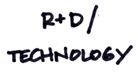 R+D/
TECHNOLOGY